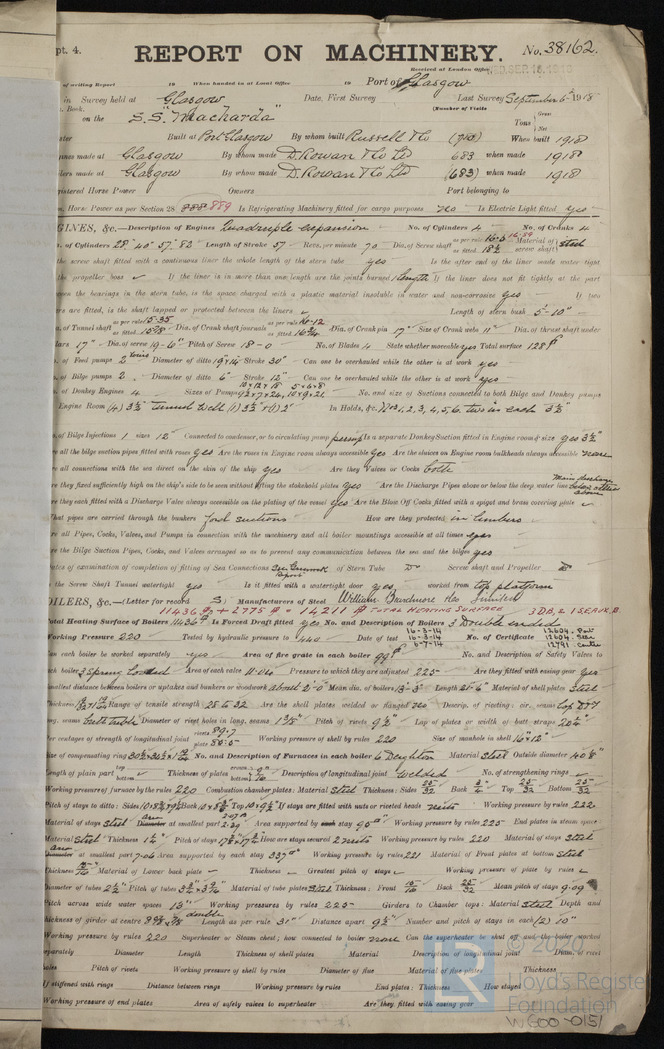 pt. 4.
REPORT ON MACHINERY. No. 38162.
Received at London Office WED. SEP. 18. 1918
of writing Report 19 When handed in at Local Office 19 Port of Glasgow
in Survey held at Glasgow Date, First Survey Last Survey September 6th 1918
Book. (Number of Visits
on the S.S. "Macharda" Tons { Gross Net
Built at Port Glasgow By whom built Russell & Co (710) When built 1918
ines made at Glasgow By whom made D. Rowan & Co Ltd 683 when made 1918
lers made at Glasgow By whom made D. Rowan & Co Ltd (683) when made 1918
gistered Horse Power Owners Port belonging to
Horse Power as per Section 28 888 889 Is Refrigerating Machinery fitted for cargo purposes no Is Electric Light fitted yes
GINES, &c.—Description of Engines Quadruple expansion No. of Cylinders 4 No. of Cranks 4
of Cylinders 28" 40" 57" 82" Length of Stroke 57 Revs. per minute 70 Dia. of Screw shaft as per rule 16.3 as fitted 18½ Material of screw shaft steel
the screw shaft fitted with a continuous liner the whole length of the stern tube yes Is the after end of the liner made water tight
the propeller boss ✓ If the liner is in more than one length are the joints burned 1 length If the liner does not fit tightly at the part
een the bearings in the stern tube, is the space charged with a plastic material insoluble in water and non-corrosive yes If two
ers are fitted, is the shaft lapped or protected between the liners ✓ Length of stern bush 5'-10"
of Tunnel shaft as per rule 15.35 as fitted 15⅝ Dia. of Crank shaft journals as per rule 16.12 as fitted 16¾ Dia. of Crank pin 17" Size of Crank webs 11" Dia. of thrust shaft under
lars 17" Dia. of screw 19-6" Pitch of Screw 18-0 No. of Blades 4 State whether moveable yes Total surface 128 ☐
of Feed pumps 2 Diameter of ditto 19 & 14 Stroke 30" Can one be overhauled while the other is at work yes
of Bilge pumps 2 Diameter of ditto 6" Stroke 12" Can one be overhauled while the other is at work yes
of Donkey Engines 4 Sizes of Pumps 10 x 12 x 18 5 x 6 x 8 No. and size of Suctions connected to both Bilge and Donkey pumps
Engine Room (4) 3½" Tunnel Well (1) 3½" & (1) 2" In Holds, &c. Nos 1, 2, 3, 4, 5, 6. two in each 3½"
of Bilge Injections 1 sizes 12" Connected to condenser, or to circulating pump pump Is a separate Donkey Suction fitted in Engine room & size yes 3½"
e all the bilge suction pipes fitted with roses yes Are the roses in Engine room always accessible yes Are the sluices on Engine room bulkheads always accessible none
e all connections with the sea direct on the skin of the ship yes Are they Valves or Cocks both
e they fixed sufficiently high on the ship's side to be seen without lifting the stokehold plates yes Are the Discharge Pipes above or below the deep water line Main discharge below others above
e they each fitted with a Discharge Valve always accessible on the plating of the vessel yes Are the Blow Off Cocks fitted with a spigot and brass covering plate ✓
hat pipes are carried through the bunkers fwd suctions How are they protected in limbers
e all Pipes, Cocks, Valves, and Pumps in connection with the machinery and all boiler mountings accessible at all times yes
e the Bilge Suction Pipes, Cocks, and Valves arranged so as to prevent any communication between the sea and the bilges yes
ates of examination of completion of fitting of Sea Connections See Greenock Report of Stern Tube Do Screw shaft and Propeller Do
the Screw Shaft Tunnel watertight yes Is it fitted with a watertight door yes worked from top platform
OILERS, &c.—(Letter for record S) Manufacturers of Steel William Beardmore &Co Limited
11436 ☐ + 2775 ☐ = 14211 ☐ TOTAL HEATING SURFACE 3 DB, 2 1 SE AUX B
Total Heating Surface of Boilers 11436 ☐ Is Forced Draft fitted yes No. and Description of Boilers 3 Double ended
Working Pressure 220 Tested by hydraulic pressure to 440 Date of test 16-3-14 16-3-14 6-7-14 No. of Certificate 12604. Port 12604. Star 12791. Centre
an each boiler be worked separately yes Area of fire grate in each boiler 99 ☐ No. and Description of Safety Valves to
ach boiler 3 Spring loaded Area of each valve 11.04 Pressure to which they are adjusted 225 Are they fitted with easing gear yes
mallest distance between boilers or uptakes and bunkers or woodwork about 2'-0" Mean dia. of boilers 13'-3" Length 21'-6" Material of shell plates Steel
Thickness Range of tensile strength 28 to 32 Are the shell plates welded or flanged no Descrip. of riveting: cir. seams lap DTR
ong. seams butt treble Diameter of rivet holes in long. seams Pitch of rivets 9½" Lap of plates or width of butt straps 20¼"
er centages of strength of longitudinal joint rivets 89.7 plate 85.5 Working pressure of shell by rules 220 Size of manhole in shell 16" x 12"
ize of compensating ring No. and Description of Furnaces in each boiler 6 Deighton Material Steel Outside diameter 40⅞"
ength of plain part top bottom Thickness of plates crown bottom Description of longitudinal joint welded No. of strengthening rings ✓
Working pressure of furnace by the rules 220 Combustion chamber plates: Material Steel Thickness: Sides 25/32 Back ¾ Top 25/32 Bottom 25/32
Pitch of stays to ditto: Sides Back Top If stays are fitted with nuts or riveted heads nuts Working pressure by rules 222
Material of stays Steel Area at smallest part Area supported by each stay 90 ☐" Working pressure by rules 225 End plates in steam space
Material Steel Thickness Pitch of stays How are stays secured 2 nuts Working pressure by rules 220 Material of stays Steel
Area at smallest part 7.06 Area supported by each stay 337 ☐" Working pressure by rules 221 Material of Front plates at bottom Steel
Thickness Material of Lower back plate ✓ Thickness ✓ Greatest pitch of stays ✓ Working pressure of plate by rules ✓
Diameter of tubes 2½" Pitch of tubes 3¾" x 3¾" Material of tube plates Steel Thickness: Front 15/16 Back 25/32 Mean pitch of stays 9.09
Pitch across wide water spaces 13" Working pressures by rules 225 Girders to Chamber tops: Material Steel Depth and
hickness of girder at centre double Length as per rule 31" Distance apart 9½" Number and pitch of stays in each (2) 10"
Working pressure by rules 220 Superheater or Steam chest; how connected to boiler none Can the superheater be shut off and the boiler worked
eparately Diameter Length Thickness of shell plates Material Description of longitudinal joint Diam. of rivet
holes Pitch of rivets Working pressure of shell by rules Diameter of flue Material of flue plates Thickness
If stiffened with rings Distance between rings Working pressure by rules End plates: Thickness How stayed
Working pressure of end plates Area of safety valves to superheater Are they fitted with easing gear
© 2020
Lloyd's Register
Foundation
W600-0151